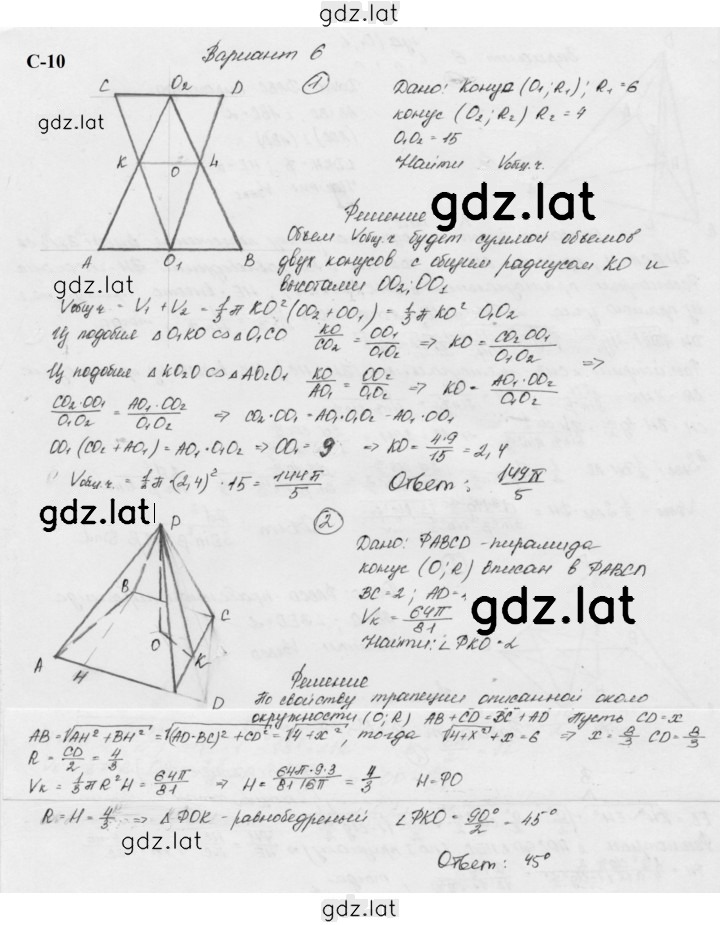 gdz.lat
С-10
Вариант 6
1
Дано: Конус (O₁; R₁); R₁ = 6
конус (O₂; R₂) R₂ = 4
O₁O₂ = 15
Найти Vобщ.ч.
C O₂ D
gdz.lat
K O 4
A O₁ B
gdz.lat
gdz.lat
Решение
Объем Vобщ.ч будет суммой объемов
двух конусов с общим радиусом KO и
высотами OO₂; OO₁
Vобщ.ч = V₁ + V₂ = 1/3 π KO² (OO₂ + OO₁) = 1/3 π KO² O₁O₂
Из подобия △O₁KO ∽ △O₁CO KO/CO₂ = OO₁/O₁O₂ ⇒ KO = CO₂·OO₁/O₁O₂
⇒
Из подобия △KO₂O ∽ △AO₂O₁ KO/AO₁ = OO₂/O₁O₂ ⇒ KO = AO₁·OO₂/O₁O₂
CO₂·OO₁/O₁O₂ = AO₁·OO₂/O₁O₂ ⇒ CO₂·OO₁ = AO₁·O₁O₂ - AO₁·OO₁
OO₁(CO₂ + AO₁) = AO₁·O₁O₂ ⇒ OO₁ = 9 ⇒ KO = 4·9/15 = 2,4
Vобщ.ч. = 1/3 π·(2,4)²·15 = 144π/5 Ответ: 144π/5
gdz.lat
2
P
B
C
O
K
A
H
D
Дано: PABCD - пирамида
конус (O; R) вписан в PABCD
BC = 2; AD =
Vк = 64π/81
Найти: ∠PKO
gdz.lat
Решение
По свойству трапеции описанной около
окружности (O; R) AB + CD = BC + AD Пусть CD = x
AB = √AH² + BH² = √(AD-BC)² + CD² = √4 + x², тогда √4 + x² + x = 6 ⇒ x = 8/3 CD = 8/3
R = CD/2 = 4/3
Vк = 1/3 π R² H = 64π/81 ⇒ H = 64π·9·3/81·16π = 4/3 H = PO
R = H = 4/3 ⇒ △POK - равнобедреный ∠PKO = 90°/2 = 45°
gdz.lat
Ответ: 45°
gdz.lat